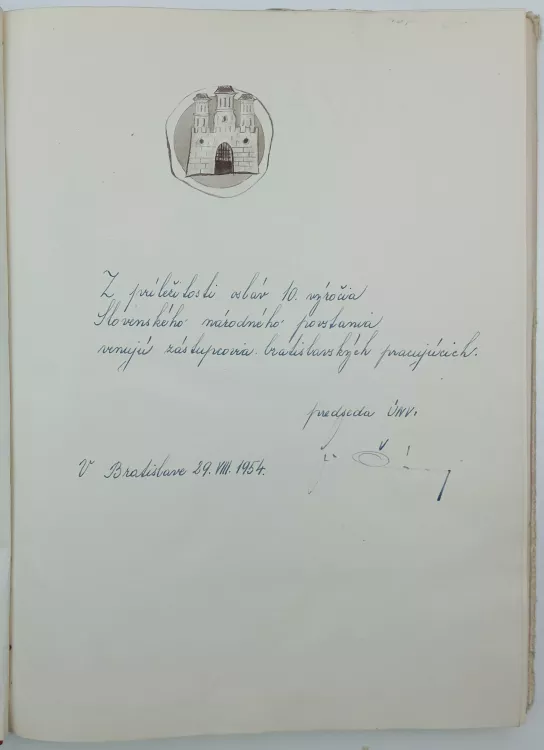 Z príležitosti osláv 10. výročia
Slovenského národného povstania
venujú zástupcovia bratislavských pracujúcich.
predseda ÚNV.
V Bratislave 29. VIII. 1954.